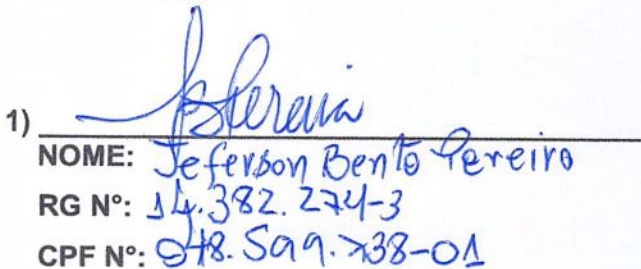 1) JBPereira
NOME: Jeferson Bento Pereira
RG Nº: 14.382.274-3
CPF Nº: